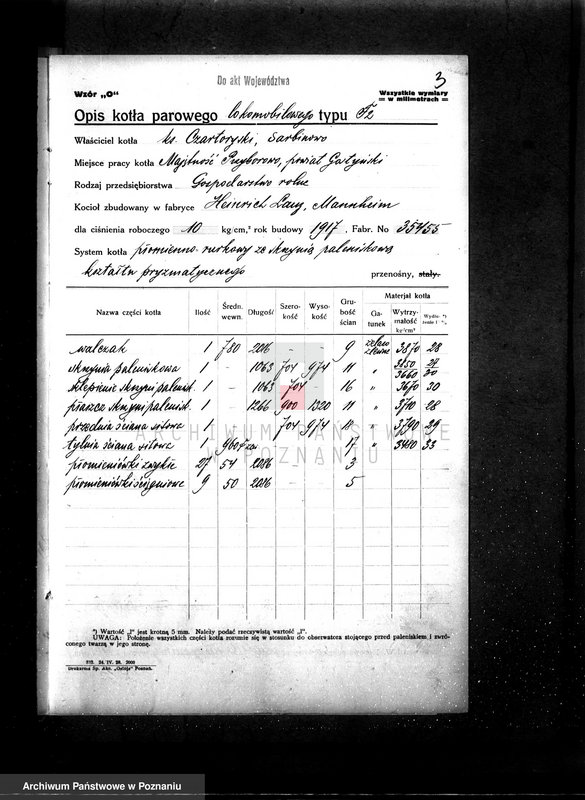 Do akt Województwa
3
Wzór „C“
Wszystkie wymiary
w milimetrach
Opis kotła parowego lokomobilowego typu F2
Właściciel kotła ks. Czartoryski, Sarbinowo
Miejsce pracy kotła Majętność Przyborowo, powiat Gostyński
Rodzaj przedsiębiorstwa Gospodarstwo rolne
Kocioł zbudowany w fabryce Heinrich Lanz, Mannheim
dla ciśnienia roboczego 10 kg/cm,² rok budowy 1917, Fabr. No 35455
System kotła płomienno-rurkowy ze skrzynią paleniskową
kształtu pryzmatycznego przenośny, stały.
Nazwa części kotła Ilość Średn. wewn. Długość Szerokość Wysokość Grubość ścian Materjał kotła Gatunek Wytrzymałość kg/cm² *)
walczak 1 780 2016 - - 9 żelazo zlewne 3870 28
skrzynia paleniskowa 1 - 1063 704 974 11 „
sklepienie skrzyni palenisk. 1 - 1063 704 - 16 „ 3670 30
płaszcz skrzyni palenisk. 1 - 1266 900 1320 11 „ 3710 28
przednia ściana sitowa 1 704 974 „ 3790 29
tylnia ściana sitowa 1 - - - 17 „ 33
płomieniówki zwykłe 27 54 2016 - - 3
płomieniówki ściągniowe 9 50 2016 - 5
ARCHIWUM PAŃSTWOWE
W POZNANIU
*) Wartość „l“ jest krotną 5 mm. Należy podać rzeczywistą wartość „l“.
UWAGA: Położenie wszystkich części kotła rozumie się w stosunku do obserwatora stojącego przed paleniskiem i zwró-
conego twarzą w jego stronę.
24. IV. 28. 2000
Drukarnia Sp. Akc. „Ostoja“ Poznań.
Archiwum Państwowe w Poznaniu